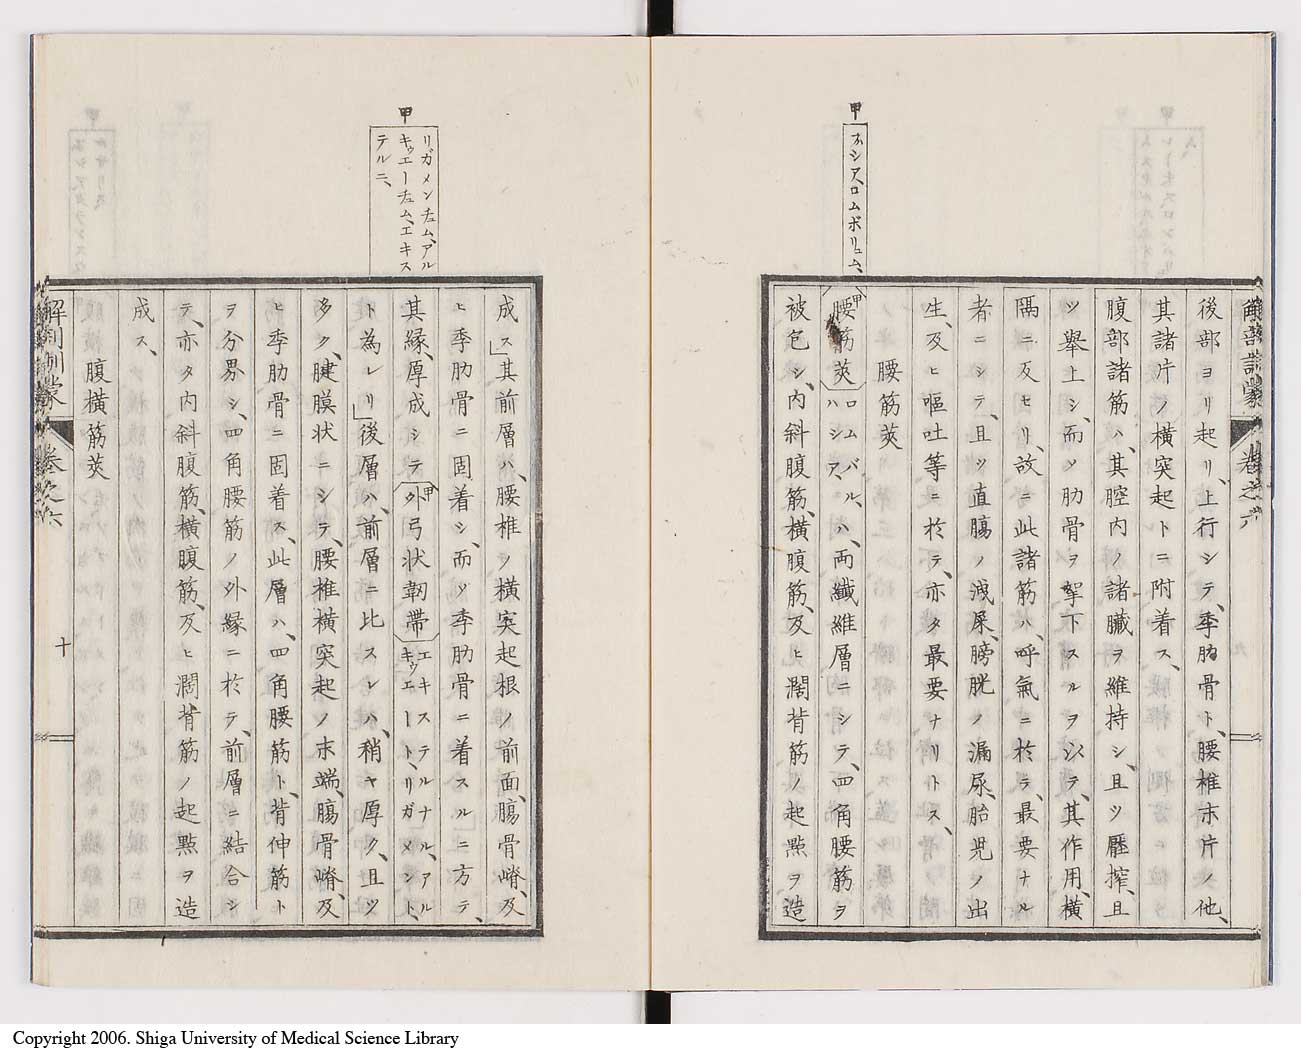 甲
ハシア、ロムボリュム、
解剖訓蒙 巻之六
後部ヨリ起リ、上行シテ、季肋骨ト、腰椎末片ノ他、
其諸片ノ横突起トニ附着ス、
腹部諸筋ハ、其腔内ノ諸臓ヲ維持シ、且ツ壓搾、且
ツ舉上シ、而ツ肋骨ヲ挈下スルヲ以テ、其作用、横
隔ニ及セリ、故ニ此諸筋ハ、呼氣ニ於テ、最要ナル
者ニシテ、且ツ直膓ノ泄屎、膀胱ノ漏尿、胎児ノ出
生、及ヒ嘔吐等ニ於テ、亦タ最要ナリトス、
腰筋莢
甲腰筋莢 ロムバル、ハシア ハ、両纎維層ニシテ、四角腰筋ヲ
被包シ、内斜腹筋、横腹筋、及ヒ濶背筋ノ起點ヲ造
甲
リガメンチュム、アル
キウエーチュム、エキス
テルニ、
成ス」其前層ハ、腰椎ヲ横突起根ノ前面、膓骨嵴、及
ヒ季肋骨ニ固着シ、而ツ季肋骨ニ着スル」ニ方テ、
其縁、厚成シテ 甲外弓状韌帶 エキステルナル、アルキウエート、リガメント、
ト為レリ」後層ハ、前層ニ比スレハ、稍ヤ厚ク、且ツ
多ク、腱膜状ニシテ、腰椎横突起ノ末端、膓骨嵴、及
ヒ季肋骨ニ固着ス、此層ハ、四角腰筋ト、背伸筋ト
ヲ分界シ、四角腰筋ノ外縁ニ於テ、前層ニ結合シ
テ、亦タ内斜腹筋、横腹筋、及ヒ濶背筋ノ起點ヲ造
成ス、
腹横筋莢
解剖訓蒙 巻之六 十
Copyright 2006. Shiga University of Medical Science Library